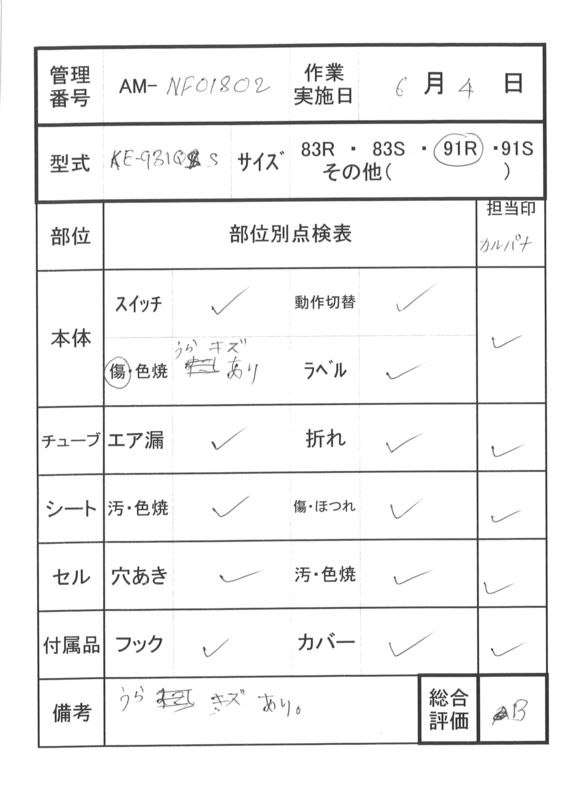 管理番号 AM-NF01802 作業実施日 6月4日
型式 KE-931Q S サイズ 83R ・ 83S ・ 91R ・91S
その他( )
部位 部位別点検表 担当印
カルパナ
本体 スイッチ ✓ 動作切替 ✓ ✓
傷・色焼 うら キズ あり ラベル ✓
チューブ エア漏 ✓ 折れ ✓ ✓
シート 汚・色焼 ✓ 傷・ほつれ ✓ ✓
セル 穴あき ✓ 汚・色焼 ✓ ✓
付属品 フック ✓ カバー ✓ ✓
備考 うら キズ あり。 総合評価 B